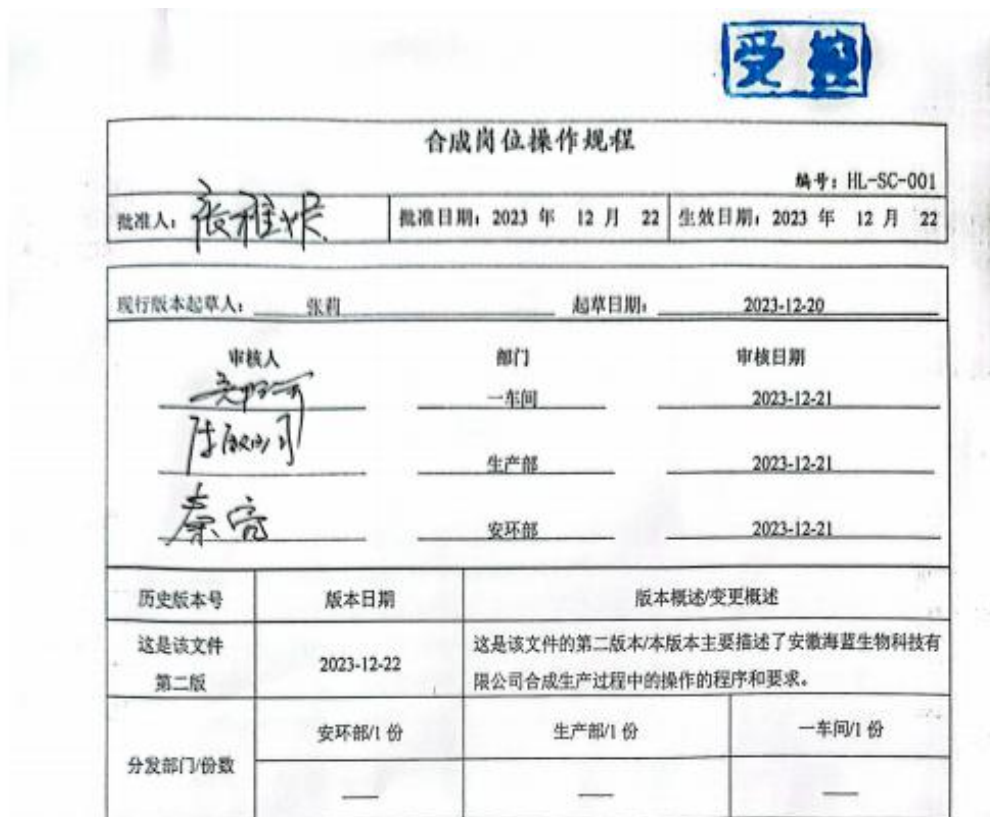 受控
合成岗位操作规程
编号：HL-SC-001
批准人： 批准日期：2023 年 12 月 22 生效日期：2023 年 12 月 22
现行版本起草人： 张莉 起草日期： 2023-12-20
审核人 部门 审核日期
一车间 2023-12-21
生产部 2023-12-21
秦亮 安环部 2023-12-21
历史版本号 版本日期 版本概述/变更概述
这是该文件 第二版 2023-12-22 这是该文件的第二版本/本版本主要描述了安徽海蓝生物科技有
限公司合成生产过程中的操作的程序和要求。
分发部门/份数 安环部/1 份 生产部/1 份 一车间/1 份
— — —